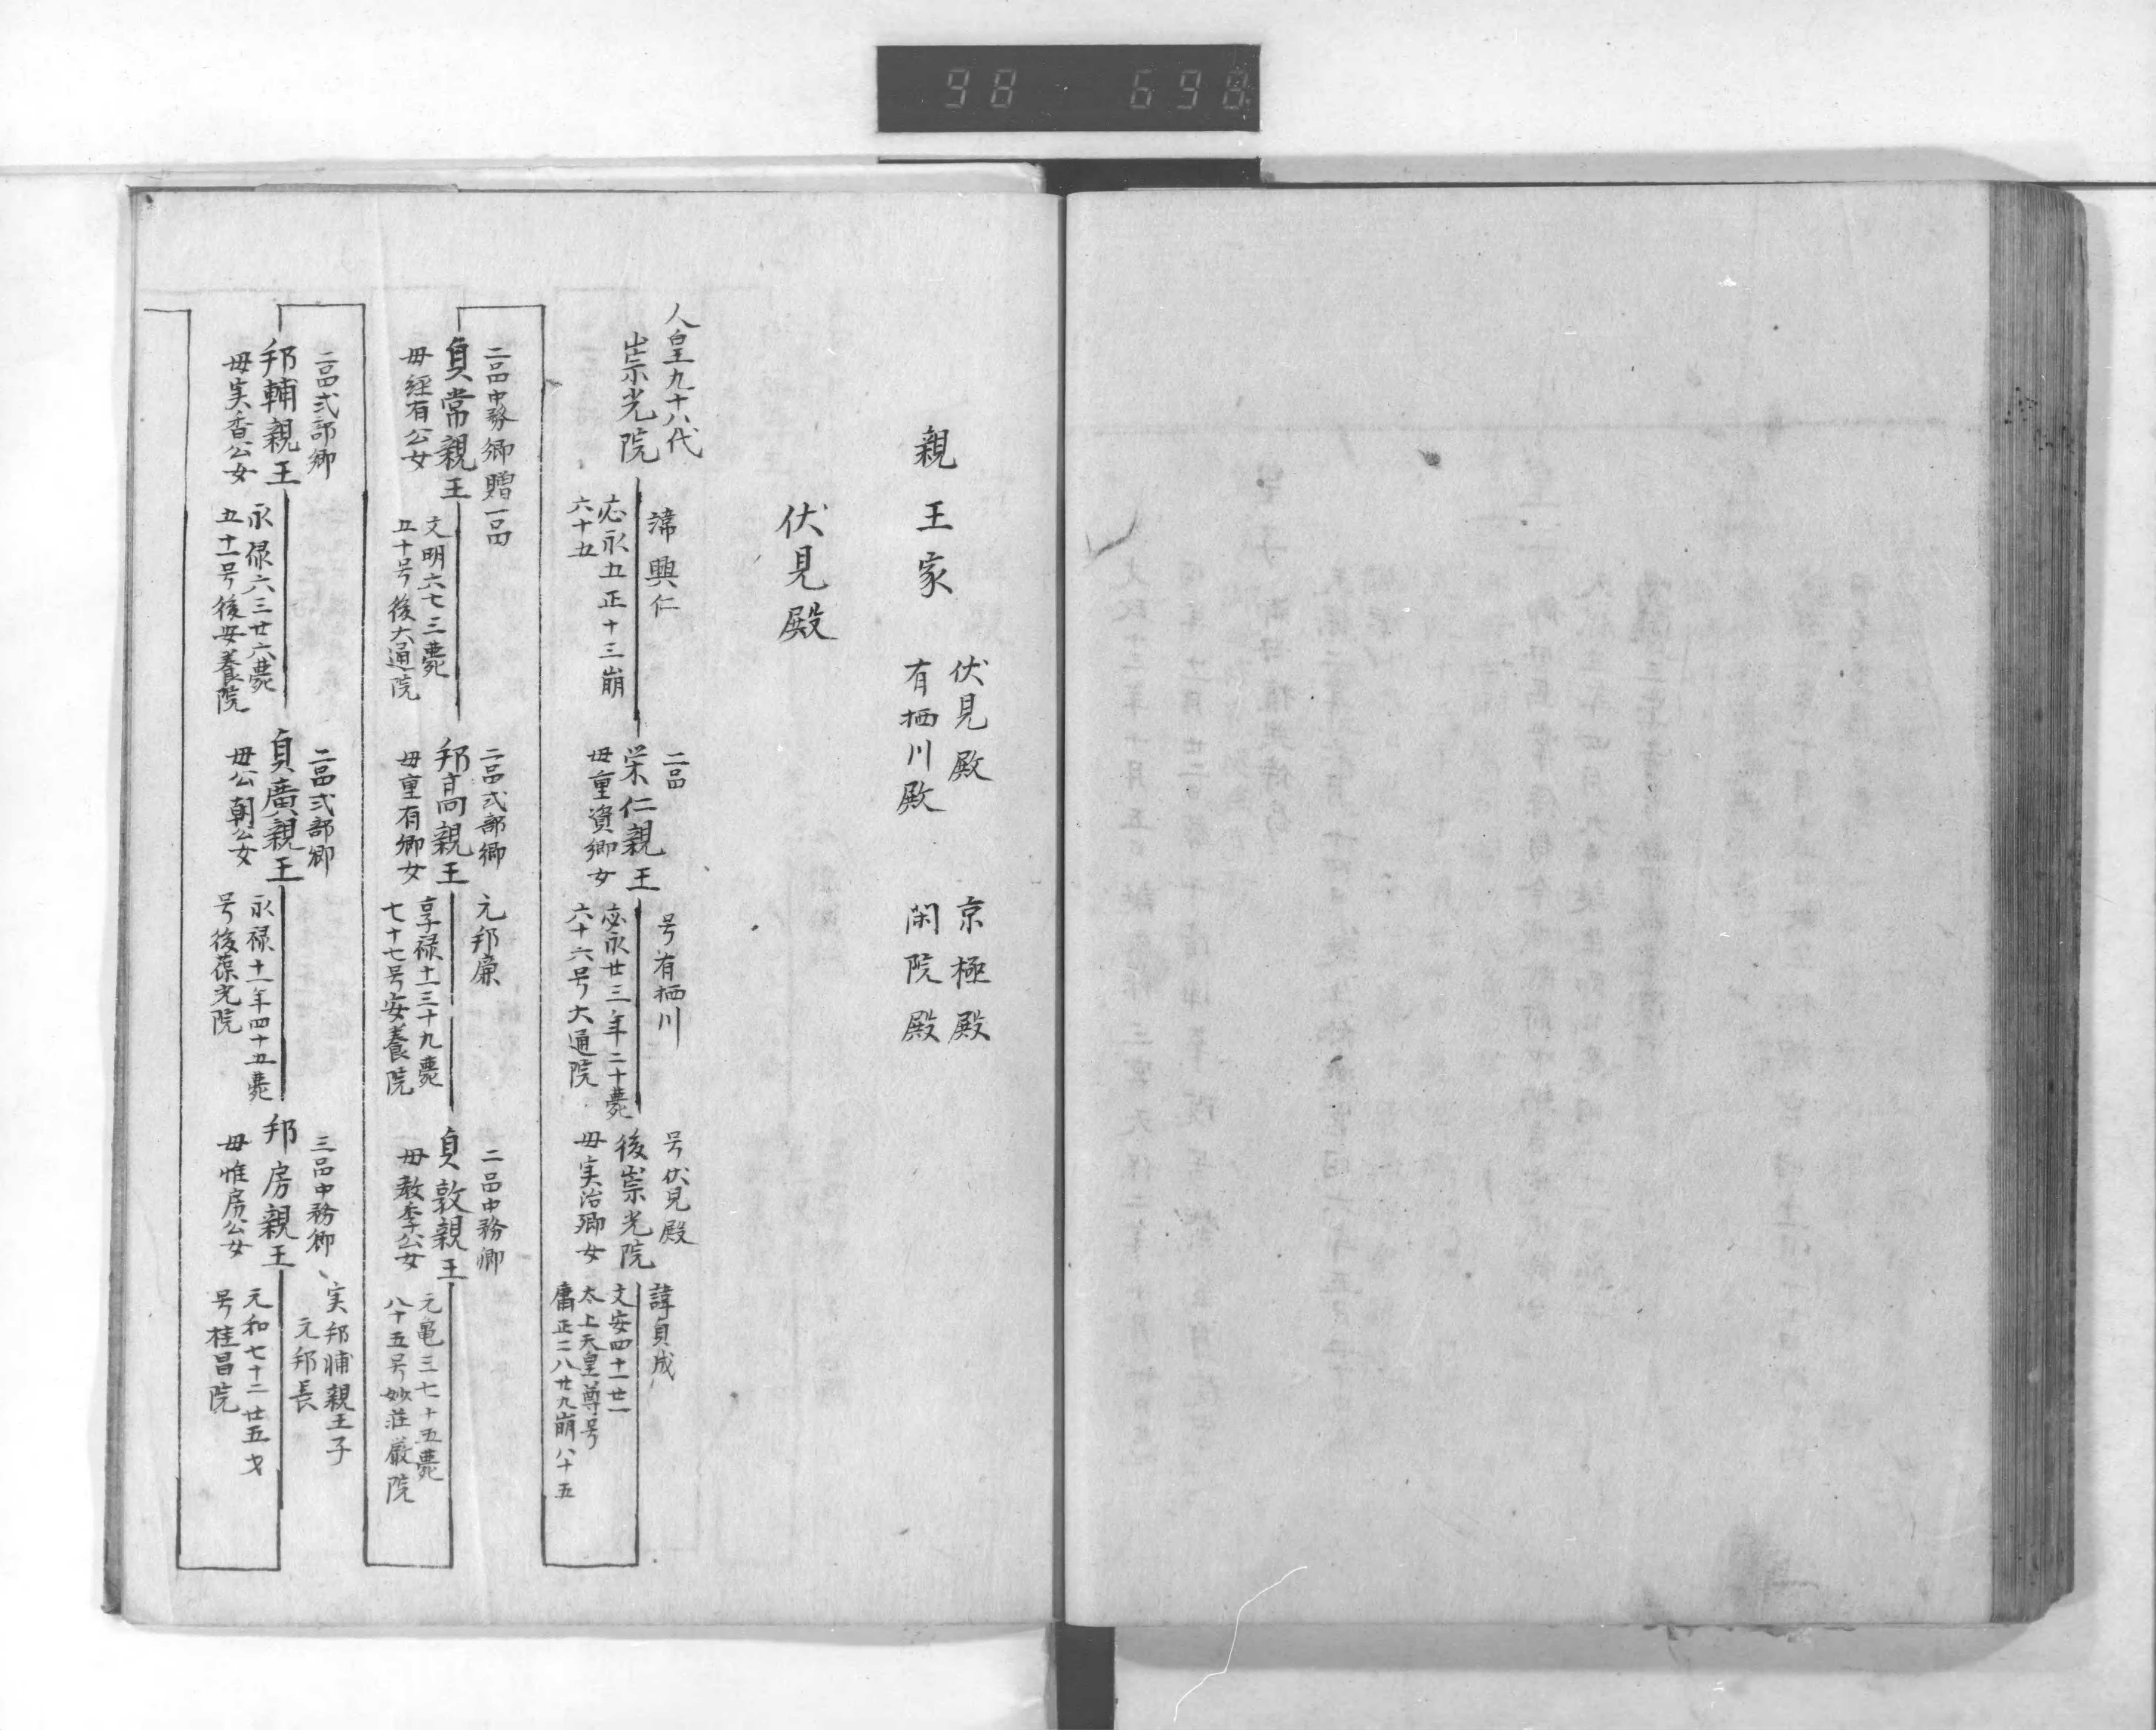 98 698
親王家
伏見殿
京極殿
有栖川殿
閑院殿
伏見殿
人皇九十八代
崇光院
諱興仁
応永五正十三崩
六十五
二品
栄仁親王
母重資卿女
号有栖川
応永廿三年二十薨
六十六号大通院
号伏見殿
後崇光院
母実治卿女
諱貞成
文安四十一廿一
太上天皇尊号
康正二八廿九崩八十五
二品中務卿贈一品
貞常親王
母経有公女
文明六七三薨
五十号後大通院
二品式部卿
邦高親王
母重有卿女
元邦康
享禄土三十九薨
七十七号安養院
二品中務卿
貞敦親王
母教季公女
元亀三七十五薨
八十五号妙荘厳院
二品式部卿
邦輔親王
母実香公女
永禄六三廿六薨
五十一号後安養院
二品式部卿
貞廣親王
母公朝公女
永禄十一年四十五薨
号後葆光院
三品中務卿
邦房親王
母惟房公女
実邦輔親王子
元邦長
元和七十二廿五才
号桂昌院